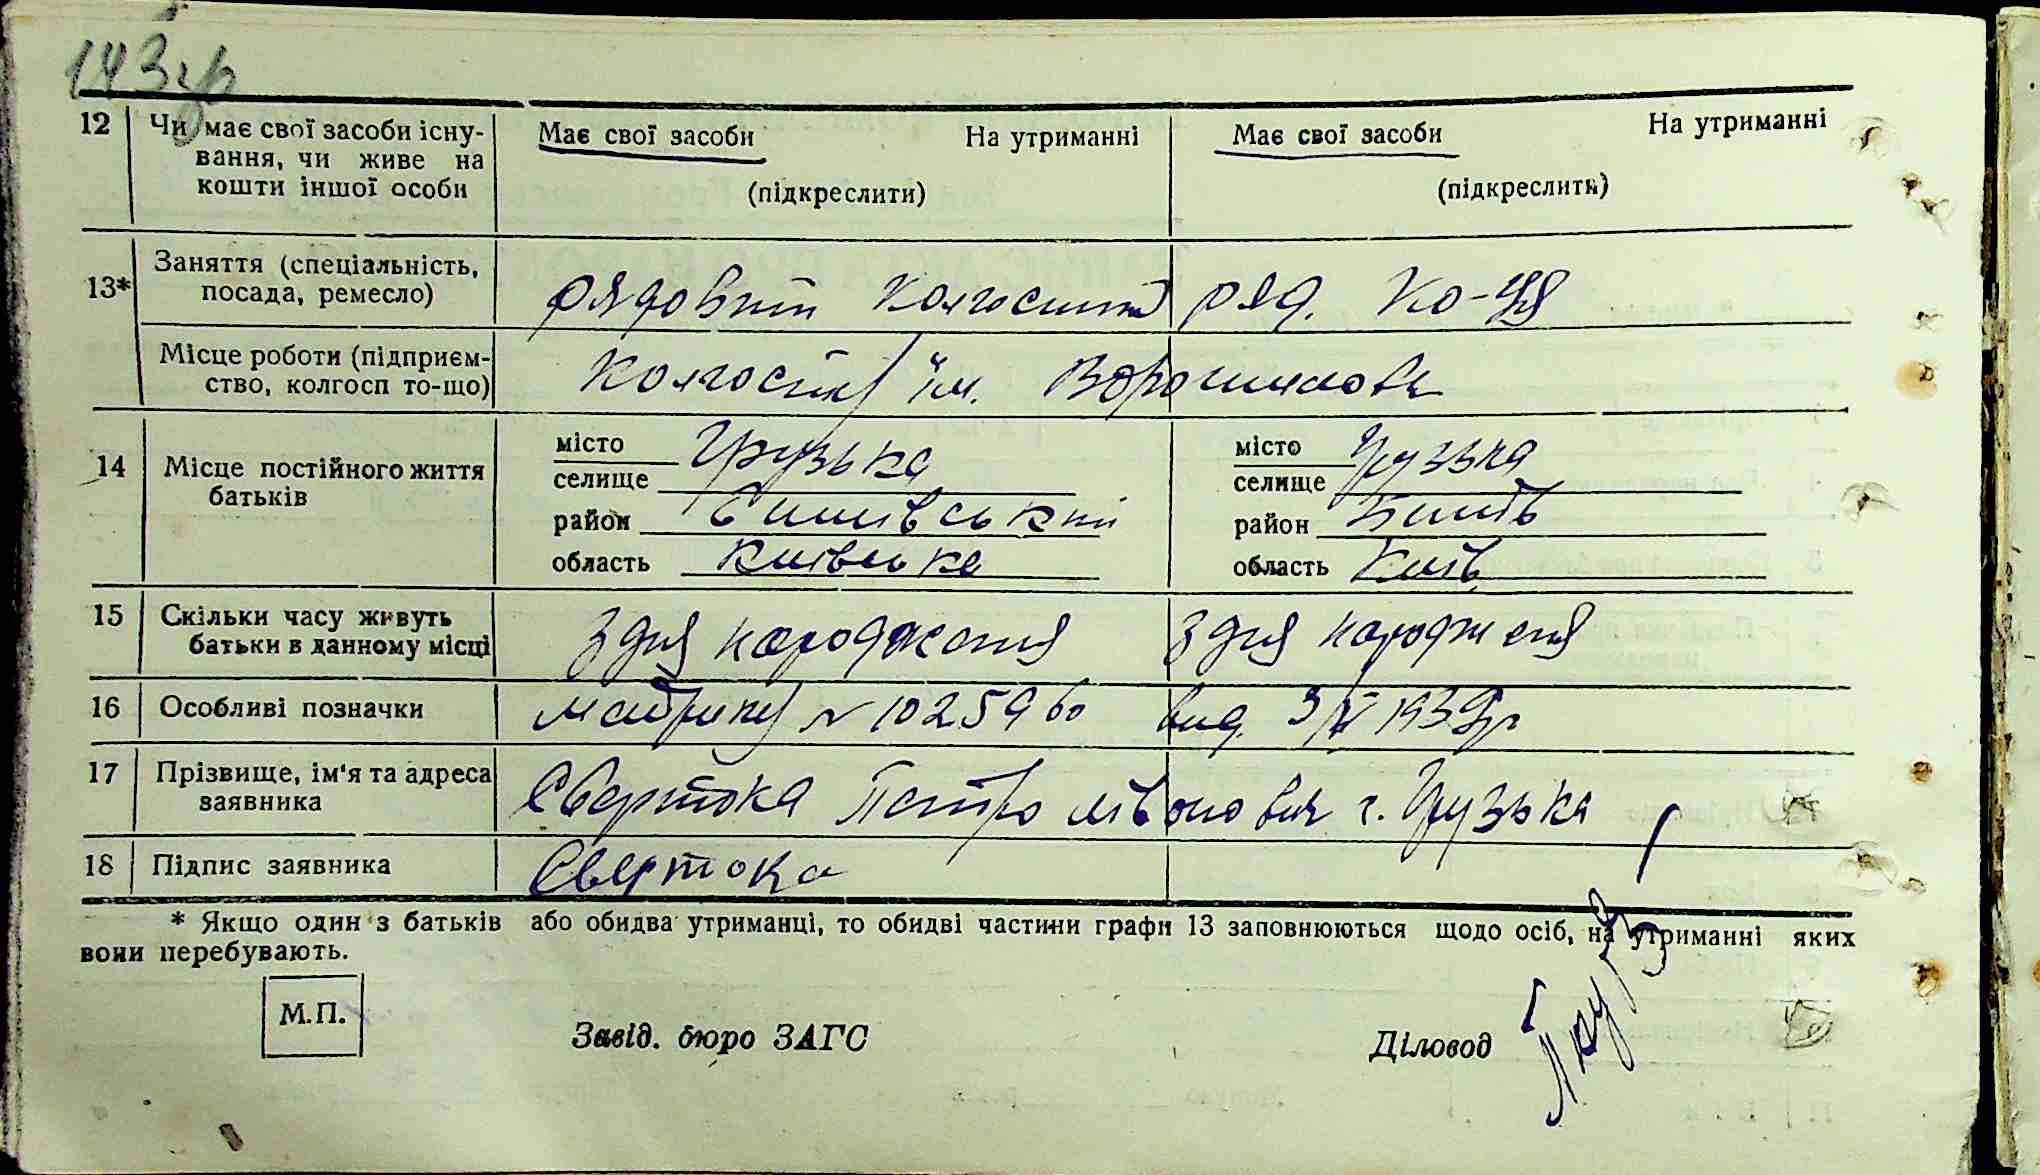 143зр
12 Чи має свої засоби існу- Має свої засоби На утриманні Має свої засоби На утриманні
вання, чи живе на
кошти іншої особи (підкреслити) (підкреслити)
13* Заняття (спеціальність,
посада, ремесло) рядовий колгоспник ряд. Ко-ця
Місце роботи (підприєм-
ство, колгосп то-що) Колгосп їм. Ворошилова
14 Місце постійного життя
батьків
місто
селище Грузька
район
область Київська
місто
селище Грузька
район
область Київ
15 Скільки часу живуть
батьки в данному місці З дня народження З дня народженя
16 Особливі позначки N 1025960 вид. 1939р
17 Прізвище, ім'я та адреса
заявника Свертока Петро с. Грузька
18 Підпис заявника Свертока
* Якщо один з батьків або обидва утриманці, то обидві частини графи 13 заповнюються щодо осіб, на утриманні яких
вони перебувають.
М.П.
Завід. бюро ЗАГС Діловод